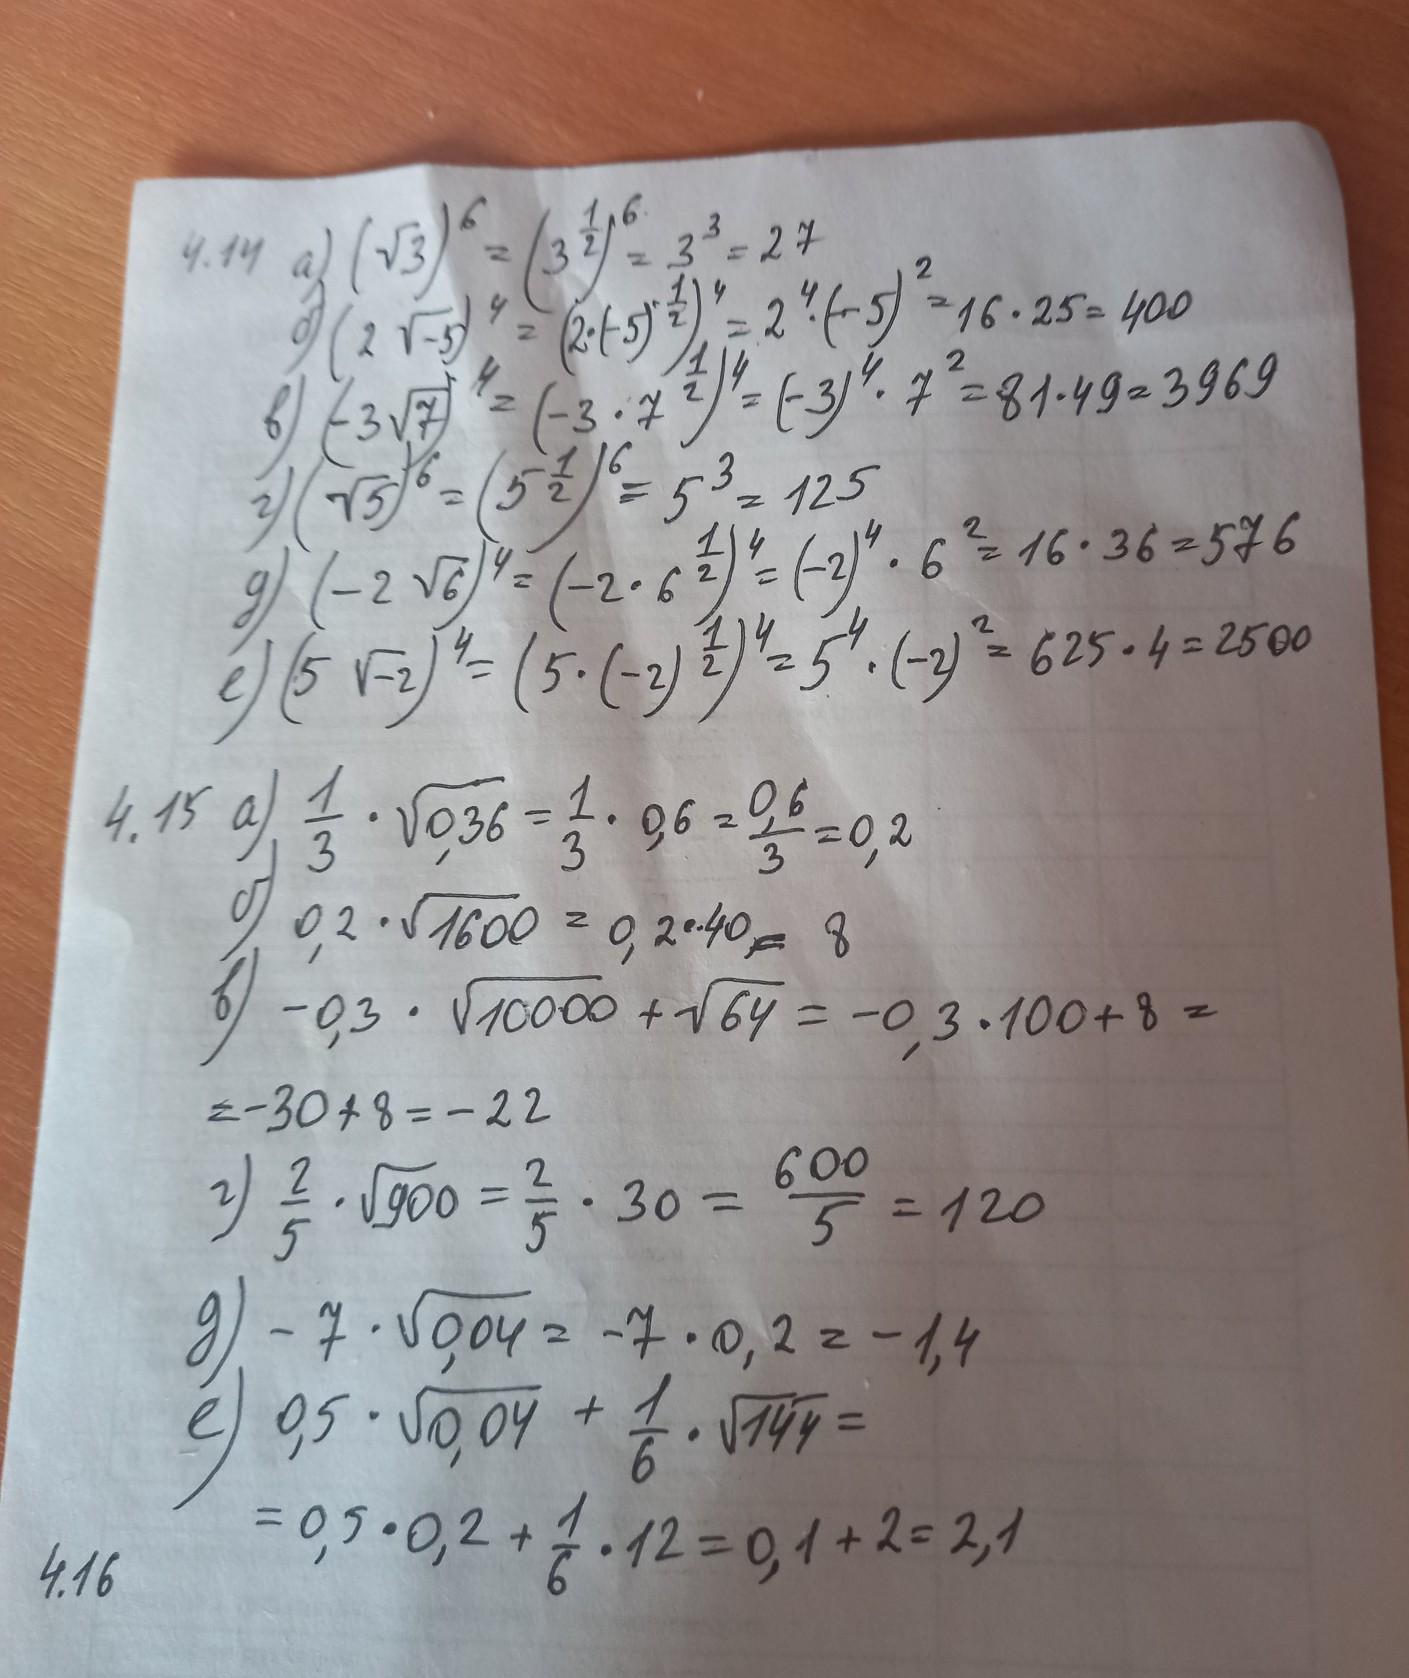 4.14 а) (√3)^6 = (3^{1/2})^6 = 3^3 = 27
б) (2 √-5)^4 = (2·(-5)^{1/2})^4 = 2^4·(-5)^2 = 16·25 = 400
в) (-3√7)^4 = (-3·7^{1/2})^4 = (-3)^4·7^2 = 81·49 = 3969
г) (√5)^6 = (5^{1/2})^6 = 5^3 = 125
д) (-2 √6)^4 = (-2·6^{1/2})^4 = (-2)^4·6^2 = 16·36 = 576
е) (5 √-2)^4 = (5·(-2)^{1/2})^4 = 5^4·(-2)^2 = 625·4 = 2500
4.15 а) 1/3 · √0,36 = 1/3 · 0,6 = 0,6/3 = 0,2
б) 0,2 · √1600 = 0,2·40 = 8
в) -0,3 · √10000 + √64 = -0,3·100+8 =
= -30+8 = -22
г) 2/5 · √900 = 2/5 · 30 = 600/5 = 120
д) -7 · √0,04 = -7·0,2 = -1,4
е) 0,5 · √0,04 + 1/6 · √144 =
= 0,5·0,2 + 1/6·12 = 0,1+2 = 2,1
4.16